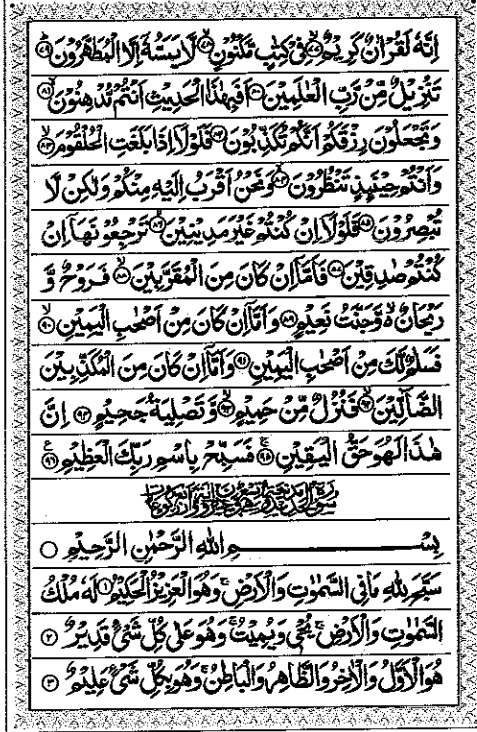 اِنَّهٗ لَقُرْاٰنٌ كَرِيْمٌ ۙ﴿۷۷﴾ فِيْ كِتٰبٍ مَّكْنُوْنٍ ۙ﴿۷۸﴾ لَّا يَمَسُّهٗٓ اِلَّا الْمُطَهَّرُوْنَ ؕ﴿۷۹﴾
تَنْزِيْلٌ مِّنْ رَّبِّ الْعٰلَمِيْنَ ﴿۸۰﴾ اَفَبِهٰذَا الْحَدِيْثِ اَنْتُمْ مُّدْهِنُوْنَ ۙ﴿۸۱﴾
وَتَجْعَلُوْنَ رِزْقَكُمْ اَنَّكُمْ تُكَذِّبُوْنَ ﴿۸۲﴾ فَلَوْلَآ اِذَا بَلَغَتِ الْحُلْقُوْمَ ۙ﴿۸۳﴾
وَاَنْتُمْ حِيْنَئِذٍ تَنْظُرُوْنَ ۙ﴿۸۴﴾ وَنَحْنُ اَقْرَبُ اِلَيْهِ مِنْكُمْ وَلٰكِنْ لَّا
تُبْصِرُوْنَ ﴿۸۵﴾ فَلَوْلَآ اِنْ كُنْتُمْ غَيْرَ مَدِيْنِيْنَ ۙ﴿۸۶﴾ تَرْجِعُوْنَهَآ اِنْ
كُنْتُمْ صٰدِقِيْنَ ﴿۸۷﴾ فَاَمَّآ اِنْ كَانَ مِنَ الْمُقَرَّبِيْنَ ۙ﴿۸۸﴾ فَرَوْحٌ وَّ
رَيْحَانٌ ۙ۬ وَّجَنَّتُ نَعِيْمٍ ﴿۸۹﴾ وَاَمَّآ اِنْ كَانَ مِنْ اَصْحٰبِ الْيَمِيْنِ ۙ﴿۹۰﴾
فَسَلٰمٌ لَّكَ مِنْ اَصْحٰبِ الْيَمِيْنِ ؕ﴿۹۱﴾ وَاَمَّآ اِنْ كَانَ مِنَ الْمُكَذِّبِيْنَ
الضَّآلِّيْنَ ۙ﴿۹۲﴾ فَنُزُلٌ مِّنْ حَمِيْمٍ ۙ﴿۹۳﴾ وَّتَصْلِيَةُ جَحِيْمٍ ﴿۹۴﴾ اِنَّ
هٰذَا لَهُوَ حَقُّ الْيَقِيْنِ ۚ﴿۹۵﴾ فَسَبِّحْ بِاسْمِ رَبِّكَ الْعَظِيْمِ ﴿۹۶﴾
بِسْمِ اللّٰهِ الرَّحْمٰنِ الرَّحِيْمِ ○
سَبَّحَ لِلّٰهِ مَا فِي السَّمٰوٰتِ وَالْاَرْضِ ۚ وَهُوَ الْعَزِيْزُ الْحَكِيْمُ ﴿۱﴾ لَهٗ مُلْكُ
السَّمٰوٰتِ وَالْاَرْضِ ۚ يُحْيٖ وَيُمِيْتُ ۚ وَهُوَ عَلٰى كُلِّ شَيْءٍ قَدِيْرٌ ﴿۲﴾
هُوَ الْاَوَّلُ وَالْاٰخِرُ وَالظَّاهِرُ وَالْبَاطِنُ ۚ وَهُوَ بِكُلِّ شَيْءٍ عَلِيْمٌ ﴿۳﴾